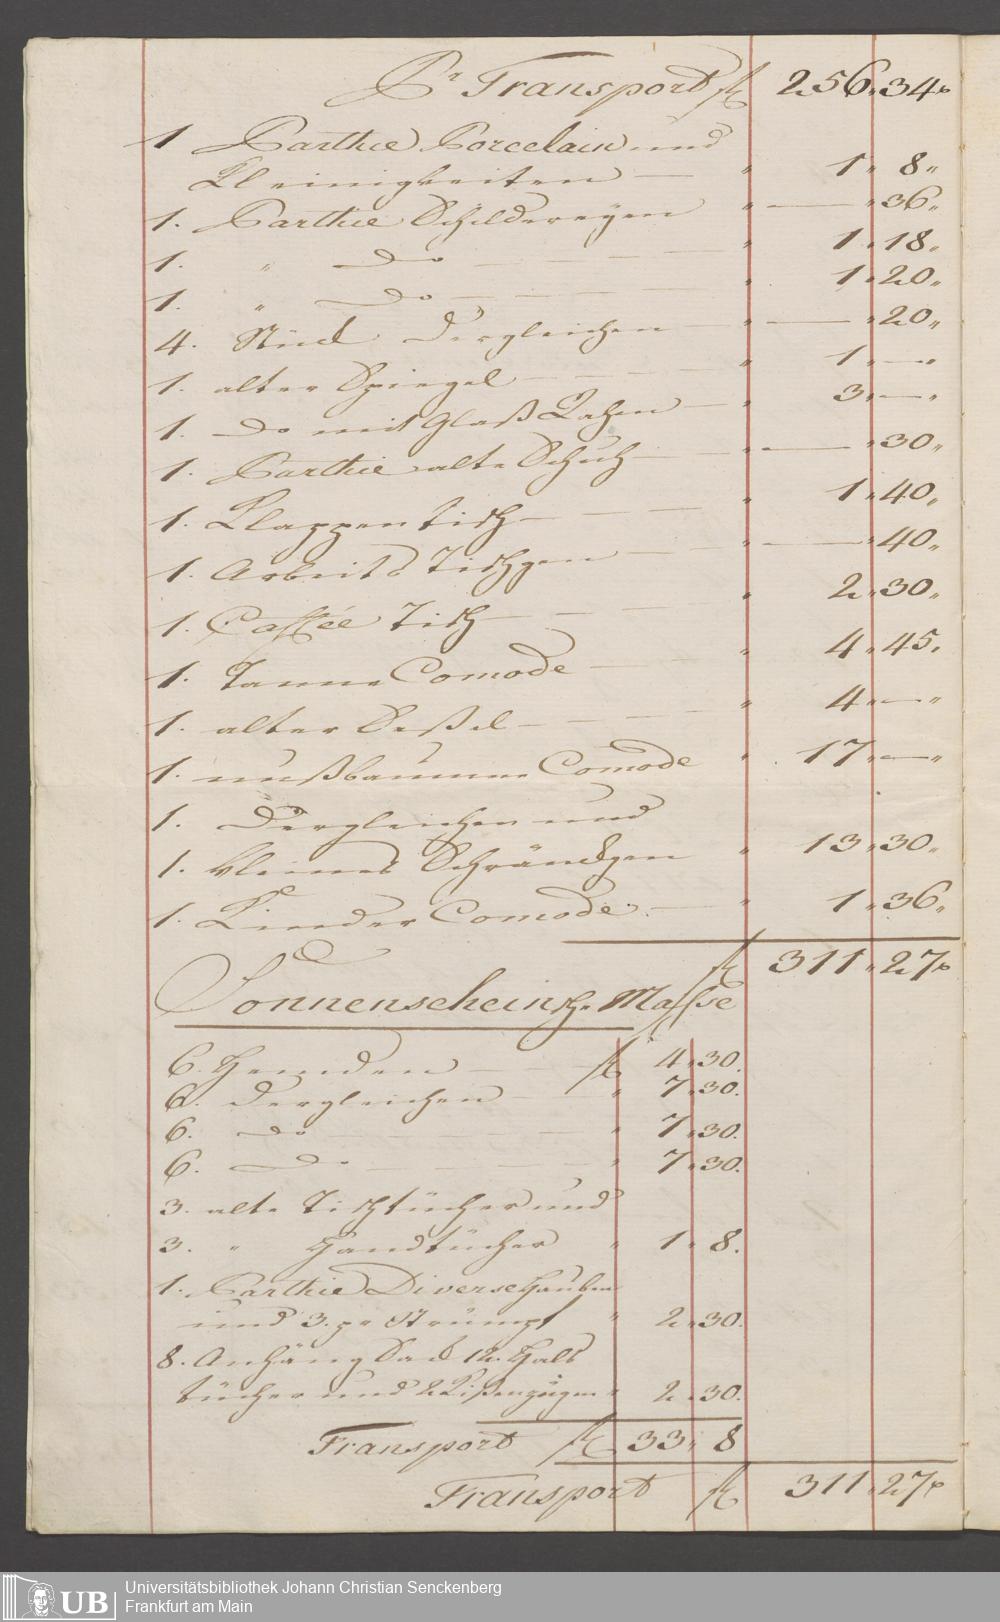 Pr Transport fl 256 „ 34 x
1 Parthie Porcelain und
Kleinigkeiten — „ 1 „ 8 „
1. Parthie Schildereyen „ — „ 36 „
1. „ Do — „ 1 „ 18 „
1. „ Do — „ 1 „ 20 „
4. Stück dergleichen — „ — „ 20 „
1. alter Spiegel — „ 1 „ — „
1. Do mit Glaß Rahen — „ 3 „ — „
1. Parthie alte Schuh — „ — „ 30 „
1. Klappentisch — „ 1 „ 40 „
1. Arbeits Tischgen — „ — „ 40 „
1. Caffée Tisch — „ 2 „ 30 „
1. Tanne Comode — „ 4 „ 45 „
1. alter Seßel — „ 4 „ — „
1. nußbaumne Comode „ 17 „ — „
1. Dergleichen und
1. kleines Schränckgen „ 13 „ 30 „
1. Kinder Comode — „ 1 „ 36 „
fl 311 „ 27 x
Sonnenscheinsche Masse
6. Hemden — fl 4 „ 30.
6. dergleichen — „ 7 „ 30.
6. Do — „ 7 „ 30.
6. Do — „ 7 „ 30.
3. alte Tischtücher und
3. „ Handtücher „ 1 „ 8.
1. Parthie Diverse Hauben
und 3. pr Strümpf „ 2 „ 30.
8. Anhäng Sack 12. Hals
tücher und 2 Kißenzügen „ 2 „ 30.
Transport fl 33 „ 8
Transport fl 311 „ 27 x
UB Universitätsbibliothek Johann Christian Senckenberg
Frankfurt am Main